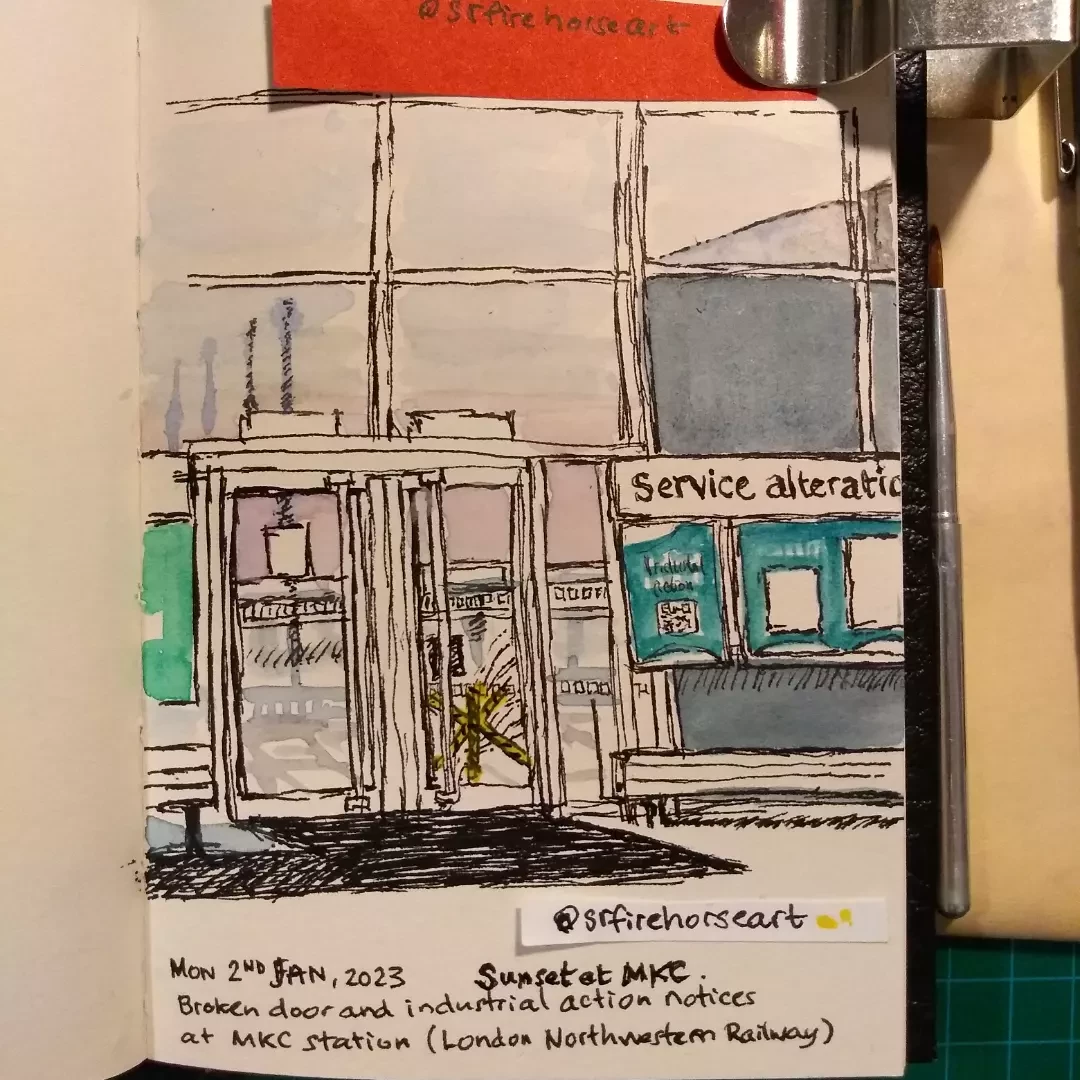 @srfirehorseart
Service alteratio
Industrial
action
@srfirehorseart
MON 2ND JAN, 2023 Sunset at MKC.
Broken door and industrial action notices
at MKC station (London Northwestern Railway)